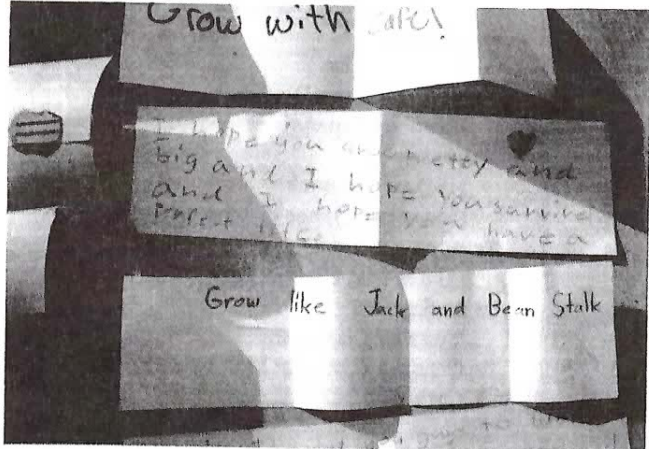 Grow with care!
I hope you grow pretty and
big and I hope you survive
and I hope you have a
perfect life
Grow like Jack and Bean Stalk
guys to